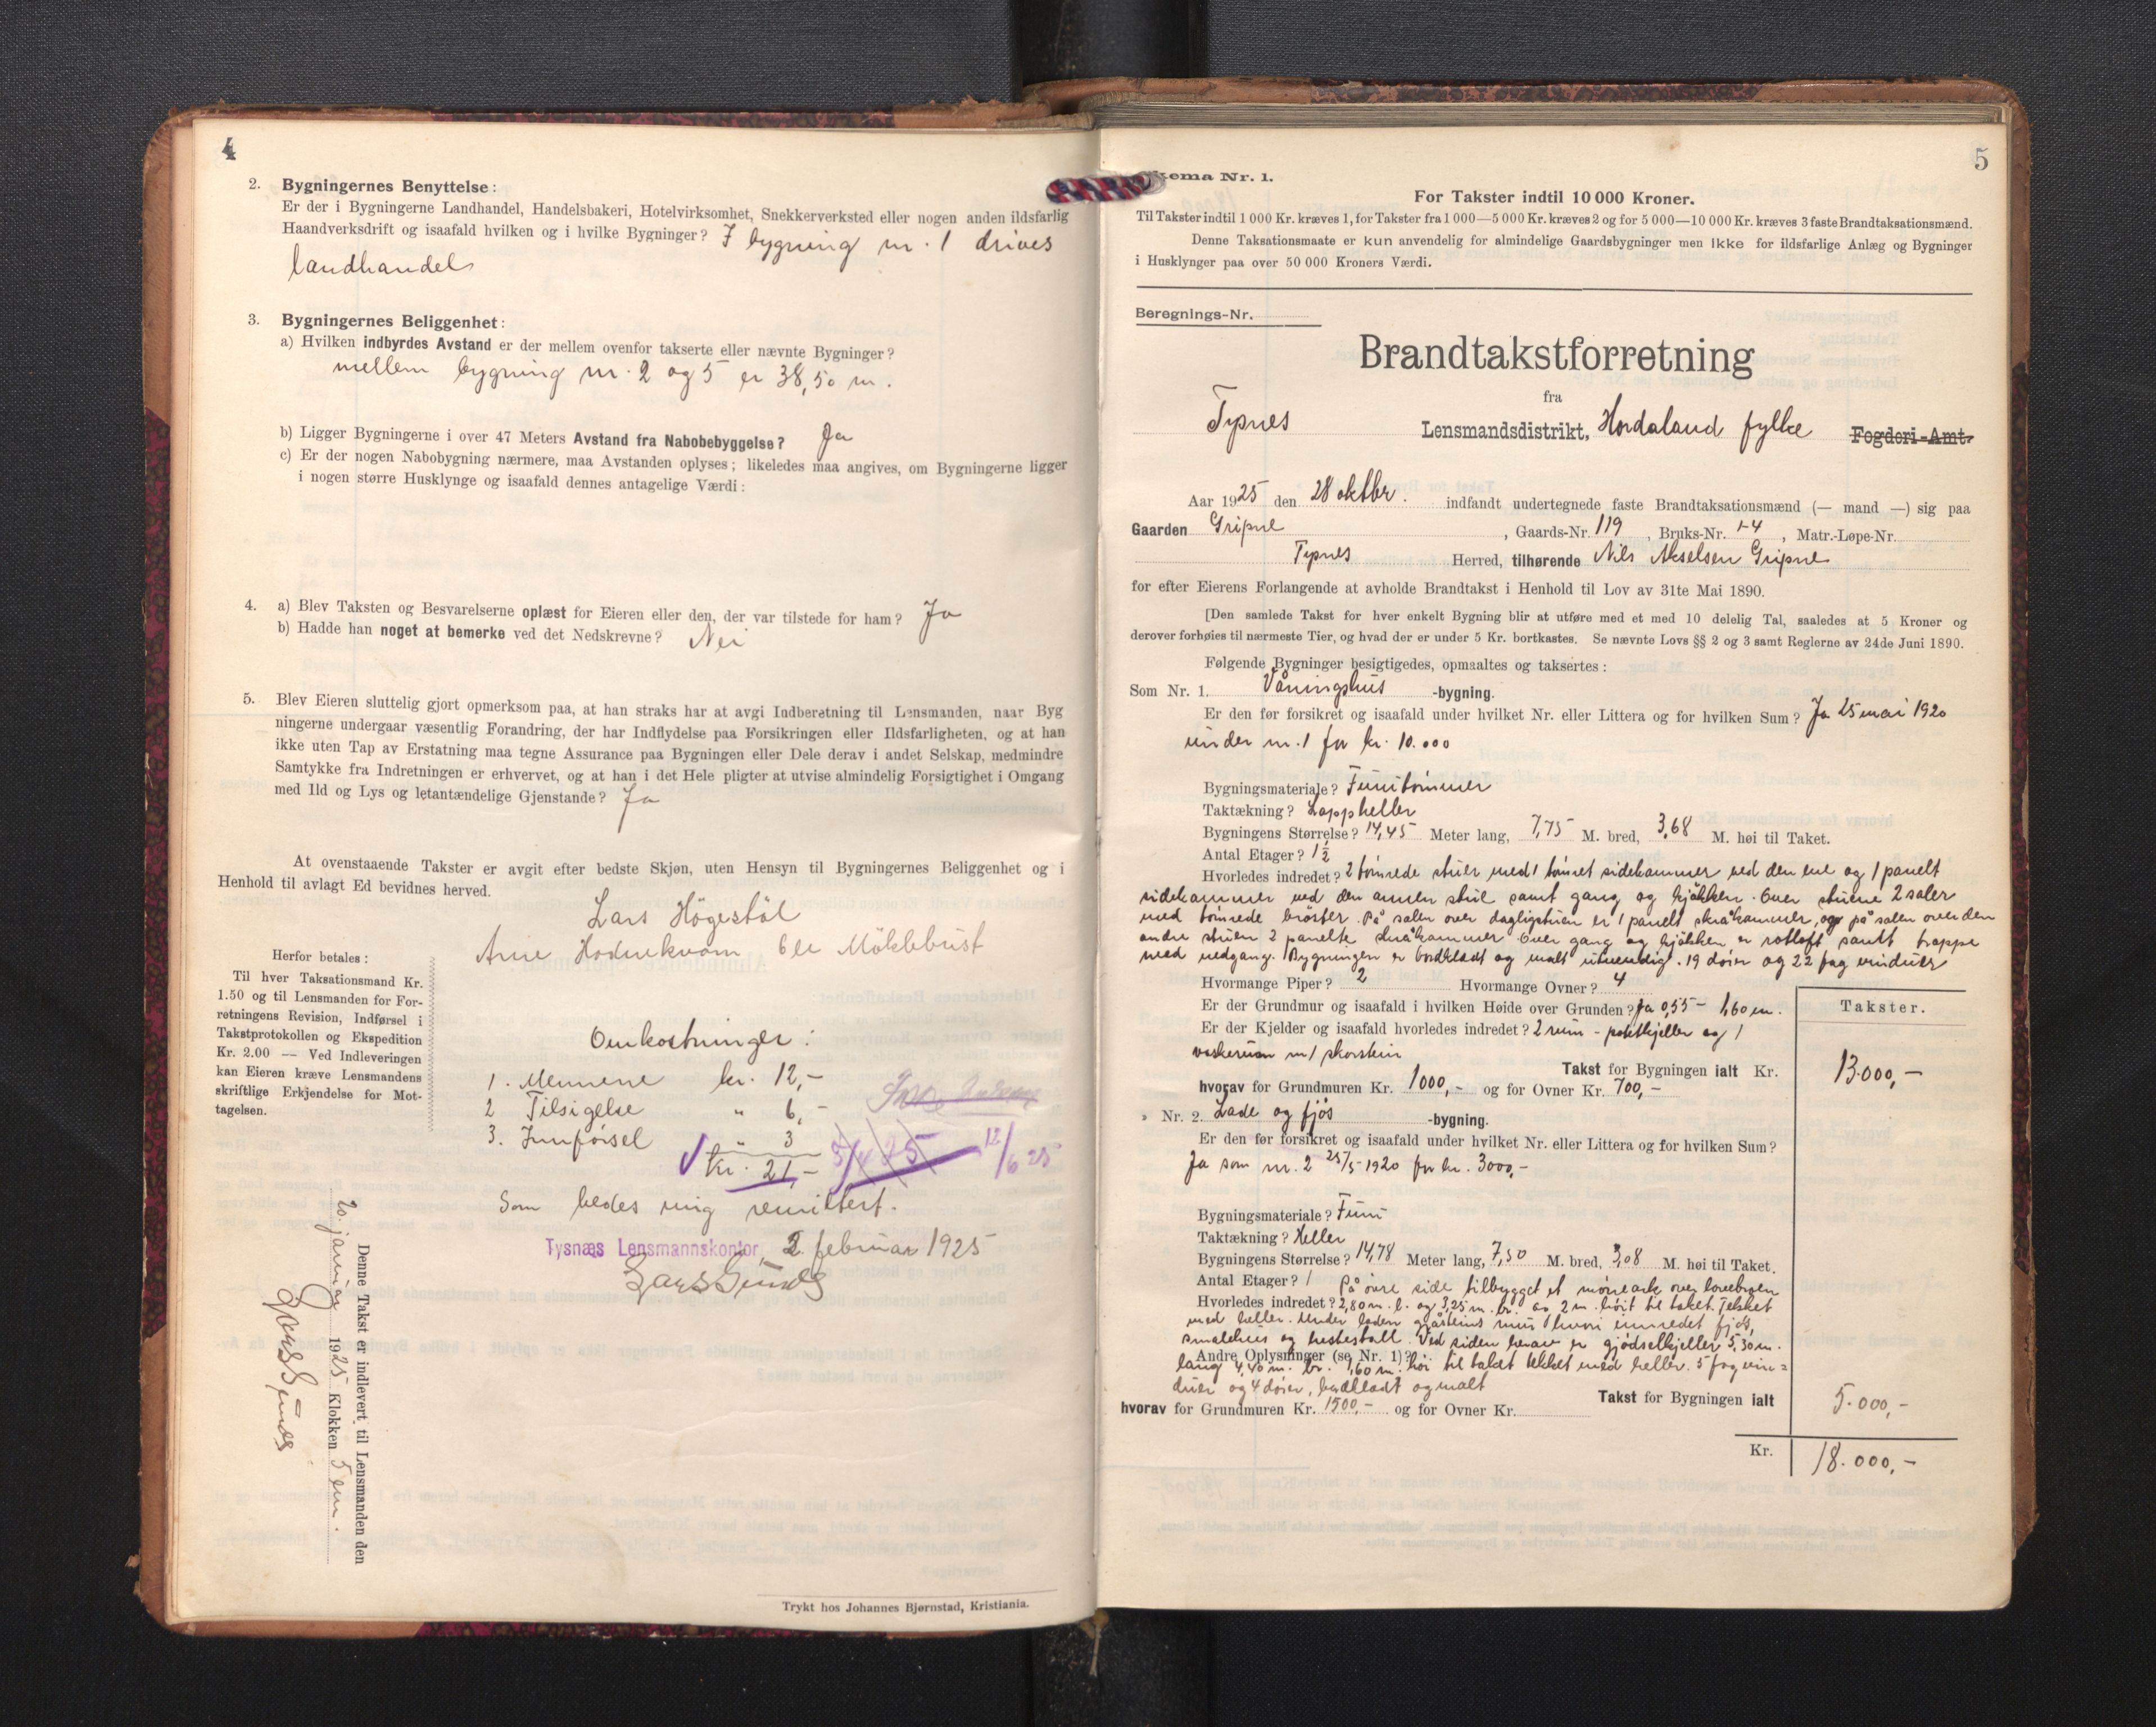 4
2. Bygningernes Benyttelse:
Er der i Bygningerne Landhandel, Handelsbakeri, Hotelvirksomhet, Snekkerverksted eller nogen anden ildsfarlig
Haandverksdrift og isaafald hvilken og i hvilke Bygninger? I bygning nr. 1 drives
landhandel
3. Bygningernes Beliggenhet:
a) Hvilken indbyrdes Avstand er der mellem ovenfor takserte eller nævnte Bygninger?
mellem bygning nr. 2 og 5 er 38,50 m.
b) Ligger Bygningerne i over 47 Meters Avstand fra Nabobebyggelse? Ja
c) Er der nogen Nabobygning nærmere, maa Avstanden oplyses; likeledes maa angives, om Bygningerne ligger
i nogen større Husklynge og isaafald dennes antagelige Værdi:
4. a) Blev Taksten og Besvarelserne oplæst for Eieren eller den, der var tilstede for ham? Ja
b) Hadde han noget at bemerke ved det Nedskrevne? Nei
5. Blev Eieren sluttelig gjort opmerksom paa, at han straks har at avgi Indberetning til Lensmanden, naar Byg
ningerne undergaar væsentlig Forandring, der har Indflydelse paa Forsikringen eller Ildsfarligheten, og at han
ikke uten Tap av Erstatning maa tegne Assurance paa Bygningen eller Dele derav i andet Selskap, medmindre
Samtykke fra Indretningen er erhvervet, og at han i det Hele pligter at utvise almindelig Forsigtighet i Omgang
med Ild og Lys og letantændelige Gjenstande? Ja
At ovenstaaende Takster er avgit efter bedste Skjøn, uten Hensyn til Bygningernes Beliggenhet og i
Henhold til avlagt Ed bevidnes herved.
Lars Högestöl
Arne Hodnekvam Ole Möklebust
Herfor betales:
Til hver Taksationsmand Kr.
1.50 og til Lensmanden for For-
retningens Revision, Indførsel i
Takstprotokollen og Ekspedition
Kr. 2.00 — Ved Indleveringen
kan Eieren kræve Lensmandens
skriftlige Erkjendelse for Mot-
tagelsen.
Omkostninger:
1. Mennene kr. 12,-
2 Tilsigelse " 6,-
3. Innførsel " 3
Kr. 21,- 12/6 25
Som bedes mig remittert.
Tysnæs Lensmannskontor, 2. februar 1925
Denne Takst er indlevert til Lensmanden den
20. januar 1925 Klokken 5 em.
Trykt hos Johannes Bjørnstad, Kristiania.
5
kema Nr. 1.
For Takster indtil 10 000 Kroner.
Til Takster indtil 1 000 Kr. kræves 1, for Takster fra 1 000—5 000 Kr. kræves 2 og for 5 000—10 000 Kr. kræves 3 faste Brandtaksationsmænd.
Denne Taksationsmaate er kun anvendelig for almindelige Gaardsbygninger men ikke for ildsfarlige Anlæg og Bygninger
i Husklynger paa over 50 000 Kroners Værdi.
Beregnings-Nr.
Brandtakstforretning
fra
Tysnes Lensmandsdistrikt, Hordaland fylke Fogderi-Amt.
Aar 1925 den 28 oktbr. indfandt undertegnede faste Brandtaksationsmænd (— mand —) sig paa
Gaarden Gripne, Gaards-Nr. 119, Bruks-Nr. 1-4, Matr.-Løpe-Nr.
Tysnes Herred, tilhørende Nils Akselsen Gripne
for efter Eierens Forlangende at avholde Brandtakst i Henhold til Lov av 31te Mai 1890.
[Den samlede Takst for hver enkelt Bygning blir at utføre med et med 10 delelig Tal, saaledes at 5 Kroner og
derover forhøies til nærmeste Tier, og hvad der er under 5 Kr. bortkastes. Se nævnte Lovs §§ 2 og 3 samt Reglerne av 24de Juni 1890.
Følgende Bygninger besigtigedes, opmaaltes og taksertes:
Som Nr. 1. Våningshus -bygning.
Er den før forsikret og isaafald under hvilket Nr. eller Littera og for hvilken Sum? Ja 25 mai 1920
under nr. 1 for kr. 10.000
Bygningsmateriale? Furutömmer
Taktækning? Lappheller
Bygningens Størrelse? 14,45 Meter lang, 7,75 M. bred, 3,68 M. høi til Taket.
Antal Etager? 1½
Hvorledes indredet? 2 tömrede stuer med 1 tömret sidekammer ved den ene og 1 panelt
sidekammer ved den annen stue samt gang og kjökken. Over stuene 2 saler
med tömrede bröster. På salen over dagligstuen er 1 panelt skråkammer, og på salen over den
andre stuen 2 panelte skråkammer. Over gang og kjökken er rotloft samt trappe
med nedgang. Bygningen er bordkledt og malt utvendig. 19 dører og 22 fag vinduer
Hvormange Piper? 2 Hvormange Ovner? 4
Er der Grundmur og isaafald i hvilken Høide over Grunden? Ja 0,55 - 1,60 m.
Er der Kjelder og isaafald hvorledes indredet? 2 rum - potetkjeller og 1
vaskerum m/ skorstein
Takster.
Takst for Bygningen ialt Kr. 13.000,-
hvorav for Grundmuren Kr. 1000,- og for Ovner Kr. 700,-
» Nr. 2. Lade og fjös -bygning.
Er den før forsikret og isaafald under hvilket Nr. eller Littera og for hvilken Sum?
Ja som nr. 2 25/5-1920 for kr. 3000,-
Bygningsmateriale? Furu
Taktækning? Heller
Bygningens Størrelse? 14,78 Meter lang, 7,50 M. bred, 3,08 M. høi til Taket.
Antal Etager? 1 På övre side tilbygget et möneark over lovebrgen
Hvorledes indredet? 2,80 m. l. og 3,25 m. br. av 2 m. höit til taket. Tekket
med heller. Under laden gråsteins mur hvori innredet fjös,
smalehus og hestestall. Ved siden herav er gjödselkjeller 5,30 m.
Andre Oplysninger (se Nr. 1)?
lang 4,40 m. br. 1,60 m. höi til taket tekket med heller. 5 fag vin=
duer og 4 dører, bordkledt og malt
Takst for Bygningen ialt 5.000,-
hvorav for Grundmuren Kr. 1500,- og for Ovner Kr.
Kr. 18.000,-